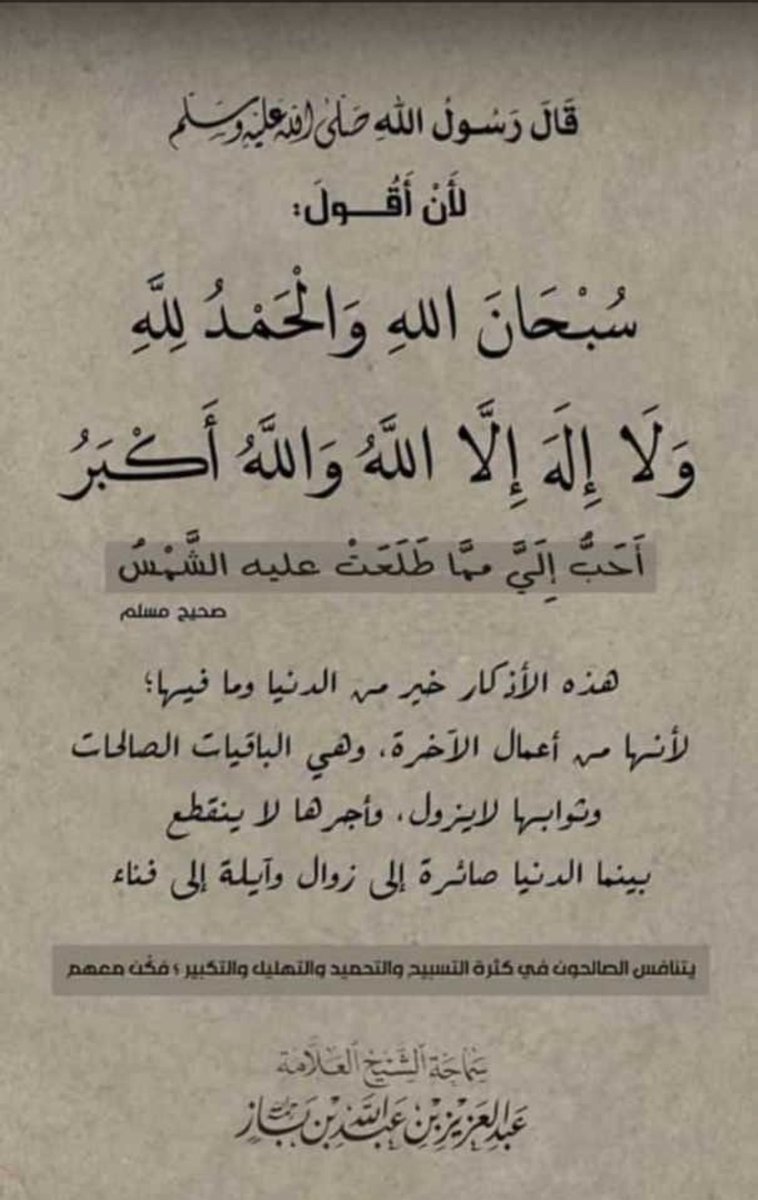 قَالَ رَسُولُ اللهِ صَلَّى اللهُ عَلَيْهِ وَسَلَّم
لَأَنْ أَقُولَ:
سُبْحَانَ اللهِ وَالْحَمْدُ لِلَّهِ
وَلَا إِلَهَ إِلَّا اللَّهُ وَاللَّهُ أَكْبَرُ
أَحَبُّ إِلَيَّ مِمَّا طَلَعَتْ عليه الشَّمْسُ
صحيح مسلم
هذه الأذكار خير من الدنيا وما فيها؛
لأنها من أعمال الآخرة، وهي الباقيات الصالحات
وثوابها لايزول، وأجرها لا ينقطع
بينما الدنيا صائرة إلى زوال وآيلة إلى فناء
يتنافس الصالحون في كثرة التسبيح والتحميد والتهليل والتكبير ؛ فكُن معهم
سَمَاحَةُ الشَّيْخِ العَلَّامَةِ
عَبْدِ العَزِيْزِ بْنِ عَبْدِ اللَّهِ بْنِ بَازٍ رحمه الله